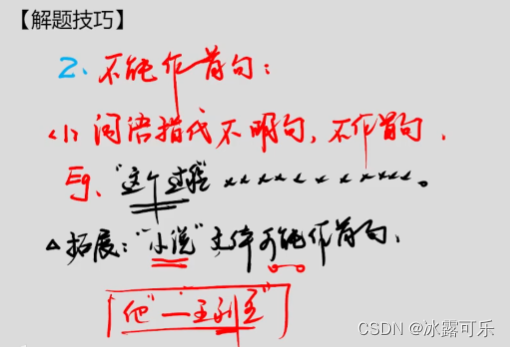 【解题技巧】
2、不能作首句：
(1) 词语指代不明句，不作首句．
Eg、"这个过程"×××××××××××。
△拓展："小说"文体可能作首句、
他"一
CSDN @冰露可乐